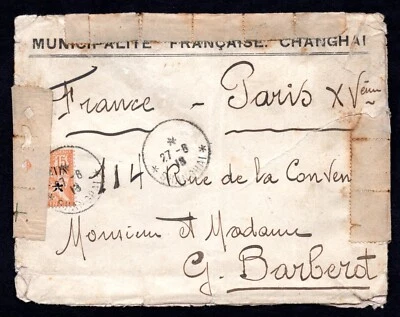 MUNICIPALITÉ FRANÇAISE. CHANGHAI
France - Paris XVème
27-6
19
15
114 Rue de la Conven
Monsieur et Madame
G. Barberot